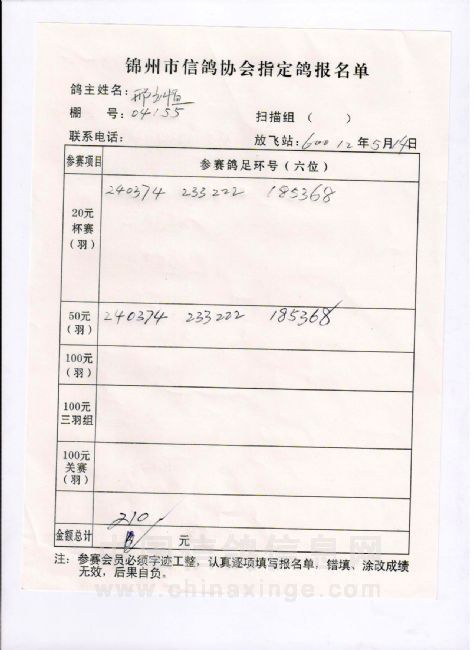 锦州市信鸽协会指定鸽报名单
鸽主姓名：邢
棚 号：04155 扫描组（ ）
联系电话： 放飞站：600 12年5月14日
参赛项目 参赛鸽足环号（六位）
20元杯赛（羽） 240374 233222 185368
50元（羽） 240374 233222 185368
100元（羽）
100元三羽组
100元关赛（羽）
210
金额总计 元
注：参赛会员必须字迹工整，认真逐项填写报名单，错填、涂改成绩
无效，后果自负。
中国信鸽信息网
www.chinaxinge.com